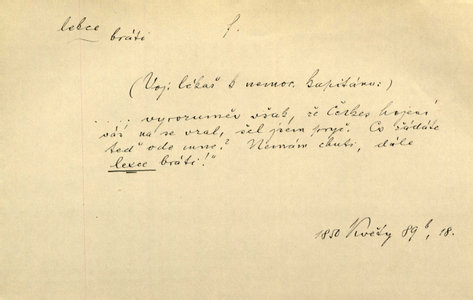 lekce
bráti
f.
(Voj. lékař k nemoc. kapitánu:)
.... vyrozuměv však, že Čerkes hojení
vás na se vzal, šel jsem pryč. Co žádáte
teď ode mne? Nemám chuti, dále
lekce bráti!"
1850 Květy 89b, 18.